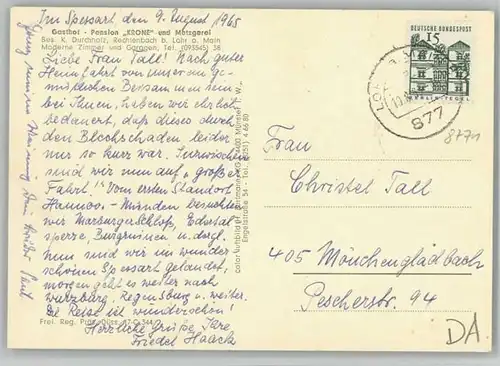 Im Spessart den 9. August 1965
Gasthof - Pension „KRONE" und Metzgerei
Bes. K. Durchholz, Rechtenbach b. Lohr a. Main
Moderne Zimmer und Garagen, Tel. (093545) 38
Liebe Frau Tall! Nach guter
Heimfahrt von unserem ge-
mütlichen Beisammensein
bei Ihnen, haben wir ehrlich
bedauert, daß dieses durch
den Blechschaden leider
nur so kurz war. Inzwischen
sind wir nun auf „großer
Fahrt"! Vom ersten Standort
Hannov.-Münden besuchten
wir Marburger Schloß, Edertal-
sperre, Burgruinen u. dergl.
Nun sind wir im wunder-
schönen Spessart gelandet,
morgen geht es weiter nach
Würzburg, Regensburg u. weiter.
Die Reise ist wunderschön!
Herzliche Grüße Ihre
Friedel Haack
Ganz meine Meinung Dein Bruder Paul
Frei. Reg. Präs. Düss. 17 C 344
color luftbild Engelstraße 54 - Tel. (0251) 4 66 80
DEUTSCHE BUNDESPOST
15
BERLIN-TEGEL
877
8771
Frau
Christel Tall
405 Mönchengladbach
Pescherstr. 94
DA